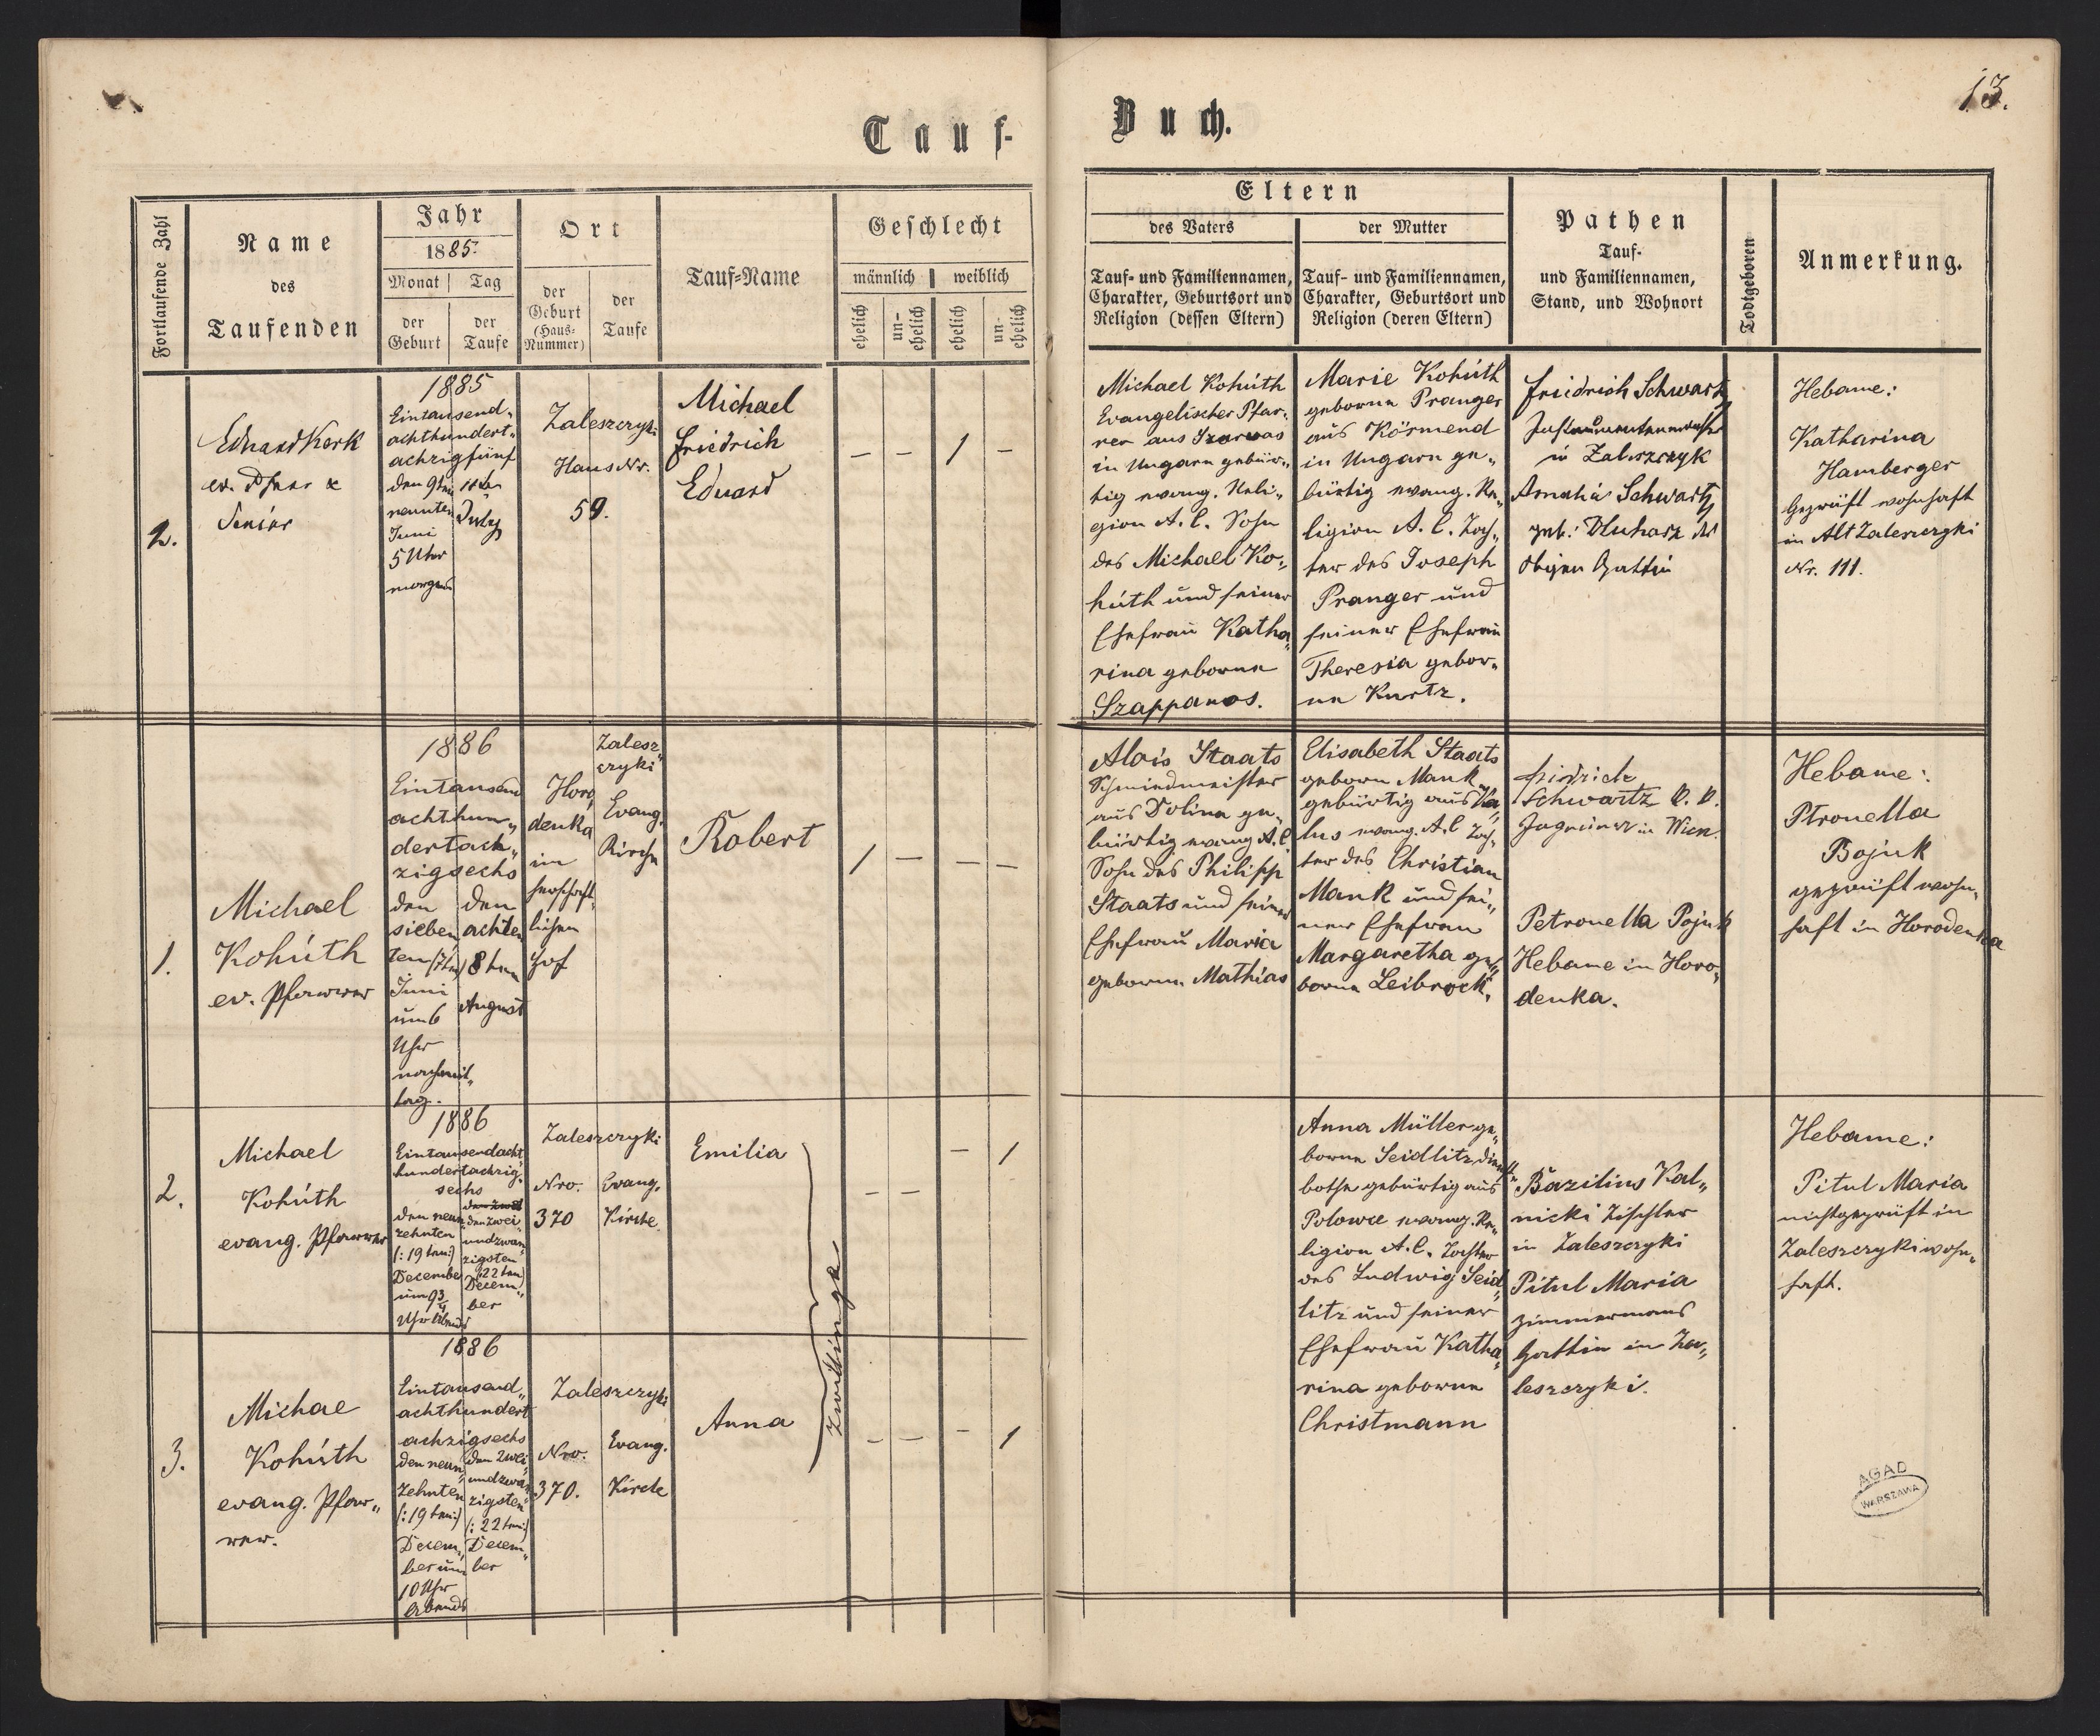 13.
Tauf-
Buch.
Fortlaufende Zahl
Name
des
Taufenden
Jahr
1885.
Monat
Tag
der
Geburt
der
Taufe
Ort
der
Geburt
(Haus-
Nummer)
der
Taufe
Tauf-Name
Geschlecht
männlich
weiblich
ehelich
un-
ehelich
ehelich
un-
ehelich
Eltern
des Vaters
der Mutter
Tauf- und Familiennamen,
Charakter, Geburtsort und
Religion (dessen Eltern)
Tauf- und Familiennamen,
Charakter, Geburtsort und
Religion (deren Eltern)
Pathen
Tauf-
und Familiennamen,
Stand, und Wohnort
Todtgeboren
Anmerkung.
2.
Eduard Kerk
ev. Pfarr &
Senior
1885
Eintausend„
achthundert„
achzigfünf
den 9ten
neunten
Juni
5 Uhr
morgens
11ten
July
Zaleszczyki
Haus Nr.
59.
Michael
Friedrich
Eduard
– – 1 –
Michael Kohúth
Evangelischer Pfar„
rer aus Szarvas
in Ungarn gebür„
tig evang. Reli„
gion A. C. Sohn
des Michael Ko„
húth und seiner
Ehefrau Katha„
rina geborne
Szappanos.
Marie Kohúth
geborne Pranger
aus Körmend
in Ungarn ge„
bürtig evang. Re„
ligion A. C. Toch„
ter des Joseph
Pranger und
seiner Ehefrau
Theresia gebor„
ne Kurtz.
Friedrich Schwartz
in Zaleszczyk
Amalia Schwartz
geb: Dluhosz des
obigen Gattin
Hebame:
Katharina
Hamberger
geprüft wohnhaft
in Alt Zaleszczyki
Nr. 111.
1.
Michael
Kohúth
ev. Pfarrer
1886
Eintausend
achthun„
dertach„
zigsechs
den
sieben
ten (7ten)
Juni
um 6
Uhr
nachmit„
tag.
den
achten
8ten
August
Horo„
denka
im
herrschaft„
lichen
Hof
Zalesz„
czyki
Evang.
Kirche
Robert
1 – – –
Alois Staats
Schmiedmeister
aus Dolina ge„
bürtig evang A.C.
Sohn des Philipp
Staats und seiner
Ehefrau Maria
geborne Mathias
Elisabeth Staats
geborn Mank
gebürtig aus Ka„
lus evang. A.C Toch„
ter des Christian
Mank und sei„
ner Ehefrau
Margaretha ge„
borne Leibrock.
Friedrich
Schwartz k. k.
in Wien.
Petronella Pojuk
Hebame in Horo„
denka.
Hebame:
Ptronella
Bojuk
geprüft wohn„
haft in Horodenka
2.
Michael
Kohúth
evang. Pfarrer
1886
Eintausendacht„
hundertachzig„
sechs
den neun„
zehnten
(: 19ten:)
December
um 9¾
Uhr Abends
den zwei
den zwei„
undzwan„
zigsten
(:22ten)
Decem„
ber
Zaleszczyki
Nro.
370
Evang.
Kirche.
Emilia
– – – 1
Zwillinge
Anna Müller ge„
borne Seidlitz, dienst„
bothe gebürtig aus
Polowce evang. Re„
ligion A. C. Tochter
des Ludwig Seid„
litz und seiner
Ehefrau Katha„
rina geborne
Christmann
Bazilius Kal„
nicki Tischler
in Zaleszczyki
Pitul Maria
zimmermans
Gattin in Za„
leszczyki.
Hebame:
Pitul Maria
nicht geprüft in
Zaleszczyki wohn„
haft.
3.
Michae
Kohúth
evang. Pfar„
rer.
1886
Eintausend„
achthundert
achzigsechs
den neun„
zehnten
(: 19ten:)
Decem„
ber um
10 Uhr
Abends
den zwei„
undzwan„
zigsten
(: 22ten:)
Decem„
ber
Zaleszczyki
Nro.
370.
Evang.
Kirche
Anna
– – – 1
AGAD
WARSZAWA